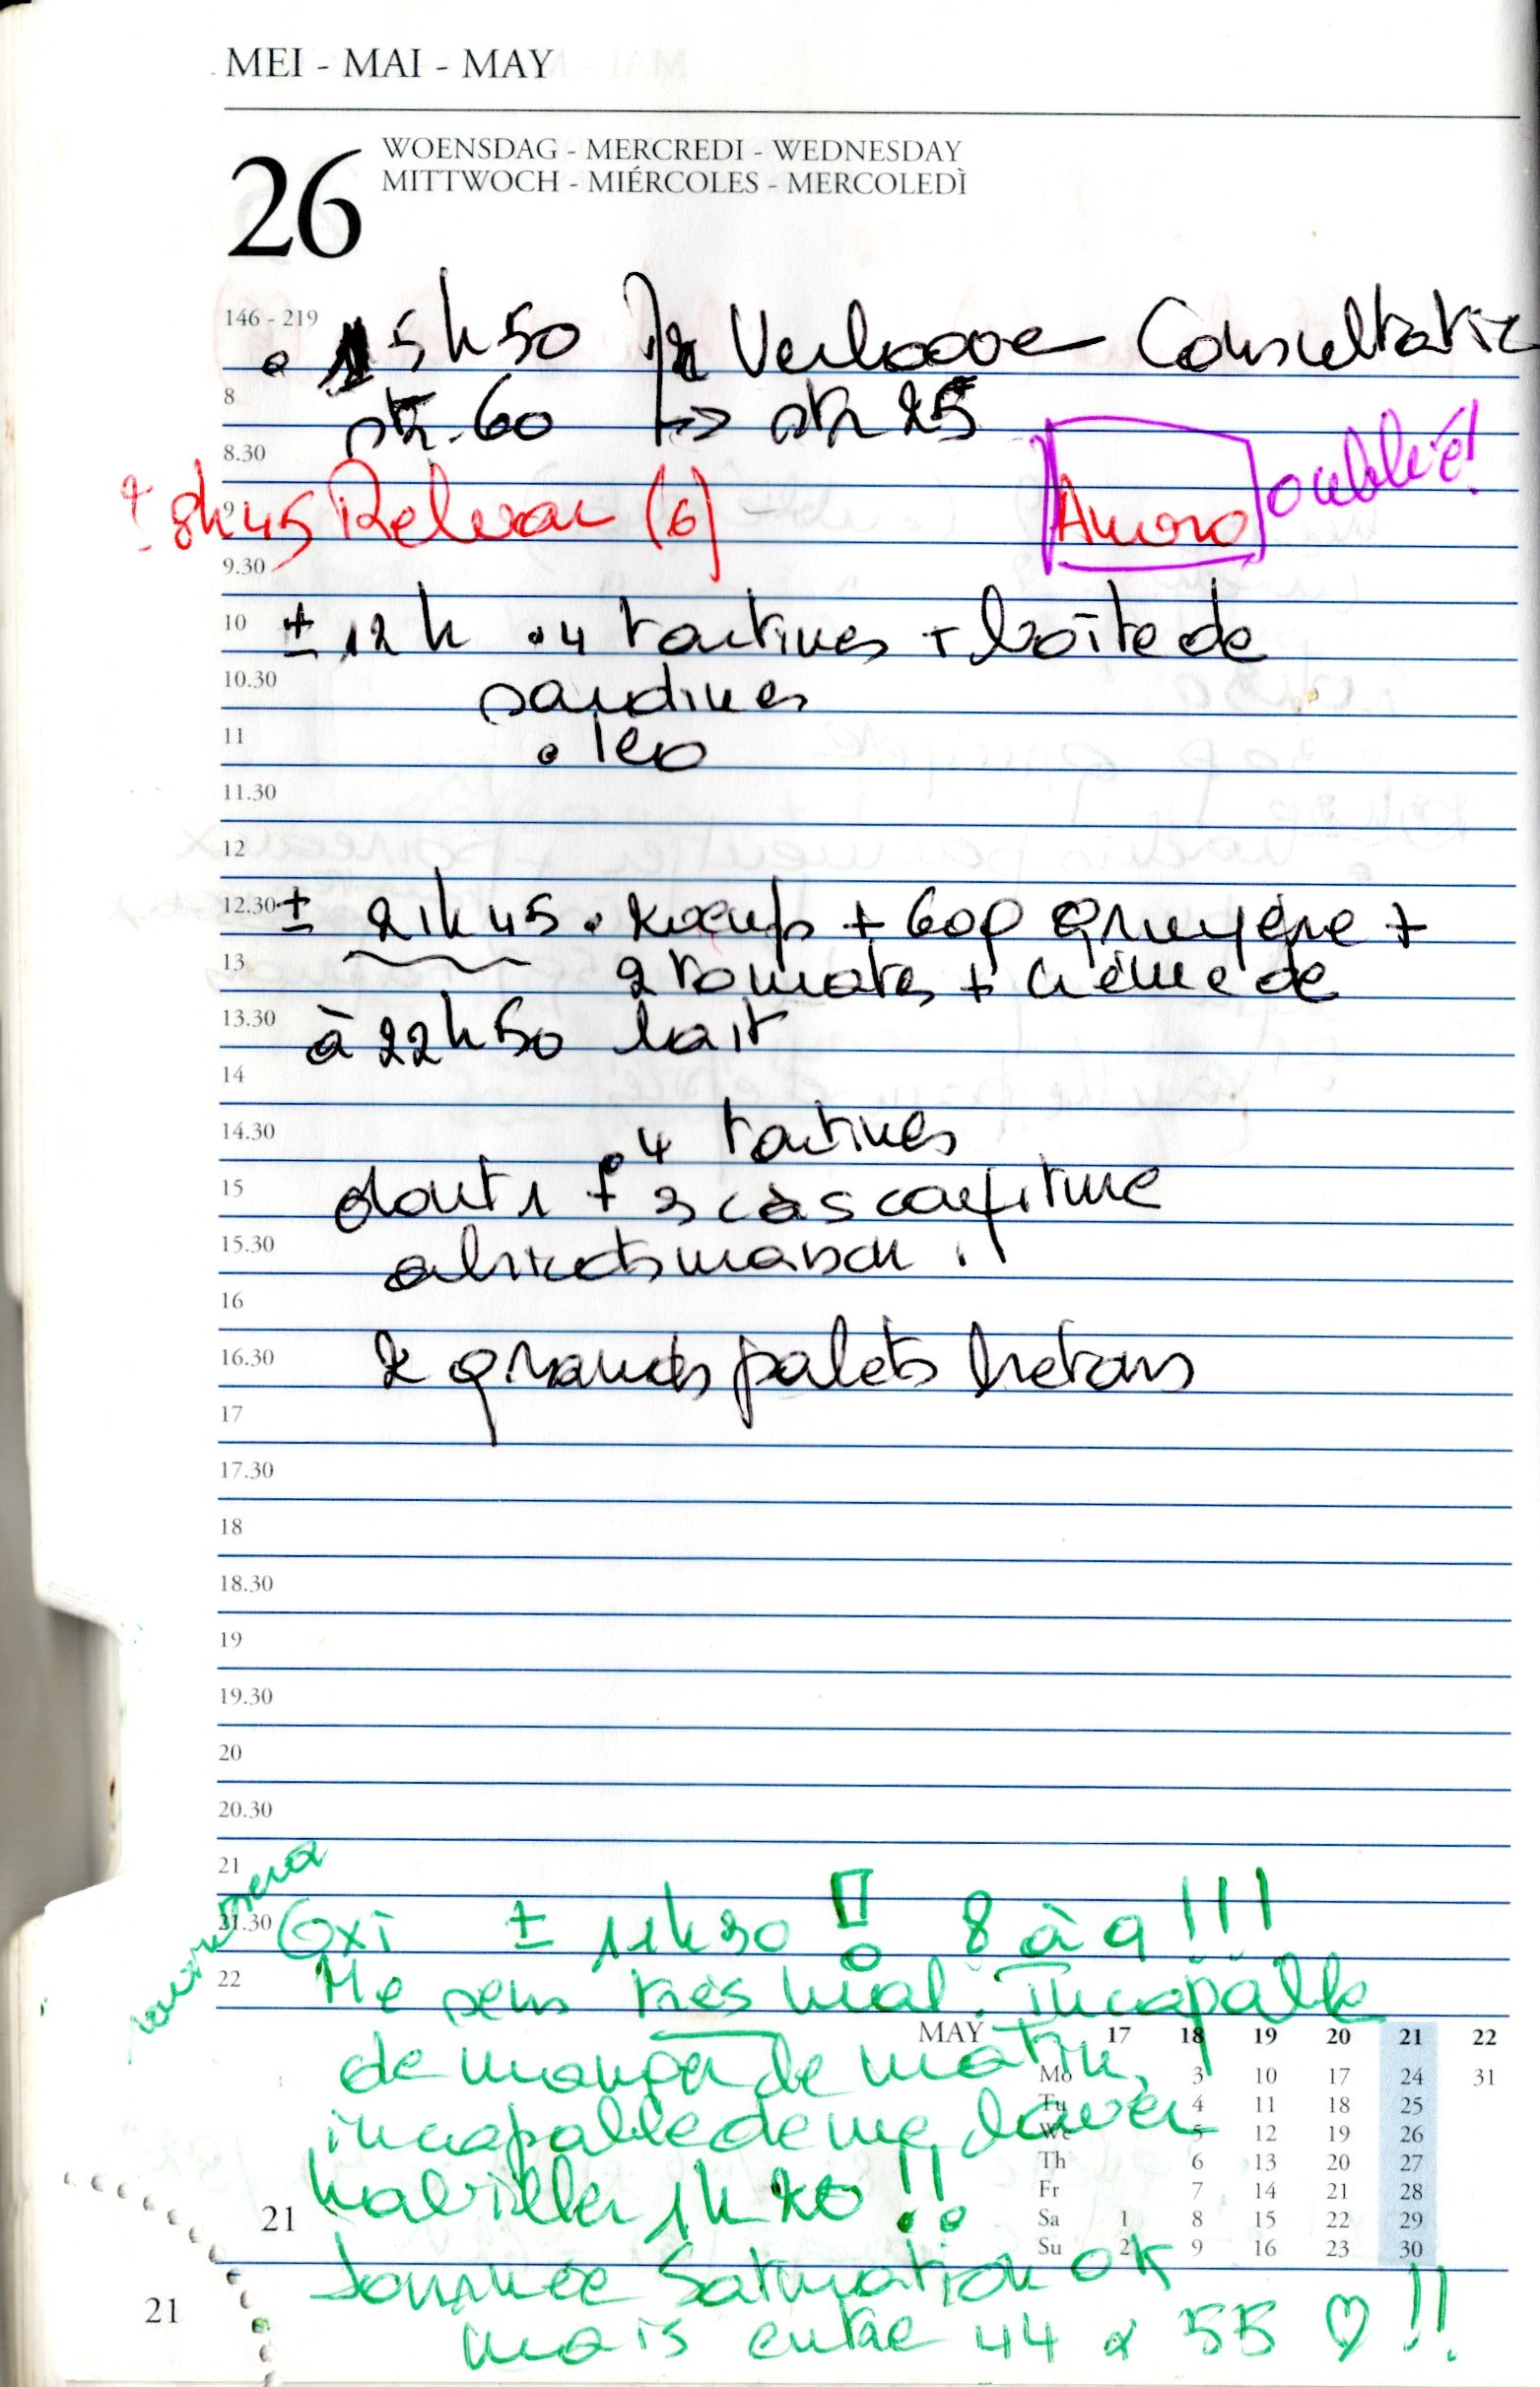 MEI - MAI - MAY
26
WOENSDAG - MERCREDI - WEDNESDAY
MITTWOCH - MIÉRCOLES - MERCOLEDÌ
146 - 219
15h50 Consultatie
8
60 25
8.30
oublié!
± 8h45 Relvar (6)
9
9.30
10
± 12h . 4 tartines + boîte de
10.30
sardines
11
. léo
11.30
12
12.30
± 21h45 . + 60g gruyère +
13
2 tomates + crème de
13.30
à 22h50 lait
14
14.30
. 4 tartines
15
dont 1 + càs confiture
15.30
abricots maison !
16
16.30
2 grands palets bretons
17
17.30
18
18.30
19
19.30
20
20.30
21
21.30
Oxi ± 11h30 8 à 9 !!!
22
Me sens très mal. Incapable
de manger le matin,
incapable de me laver
habiller 1h !!
Journée Saturation ok
mais entre 44 & 55 ♡ !!
MAY 17 18 19 20 21 22
Mo 3 10 17 24 31
Tu 4 11 18 25
We 5 12 19 26
Th 6 13 20 27
Fr 7 14 21 28
Sa 1 8 15 22 29
Su 2 9 16 23 30
21
21